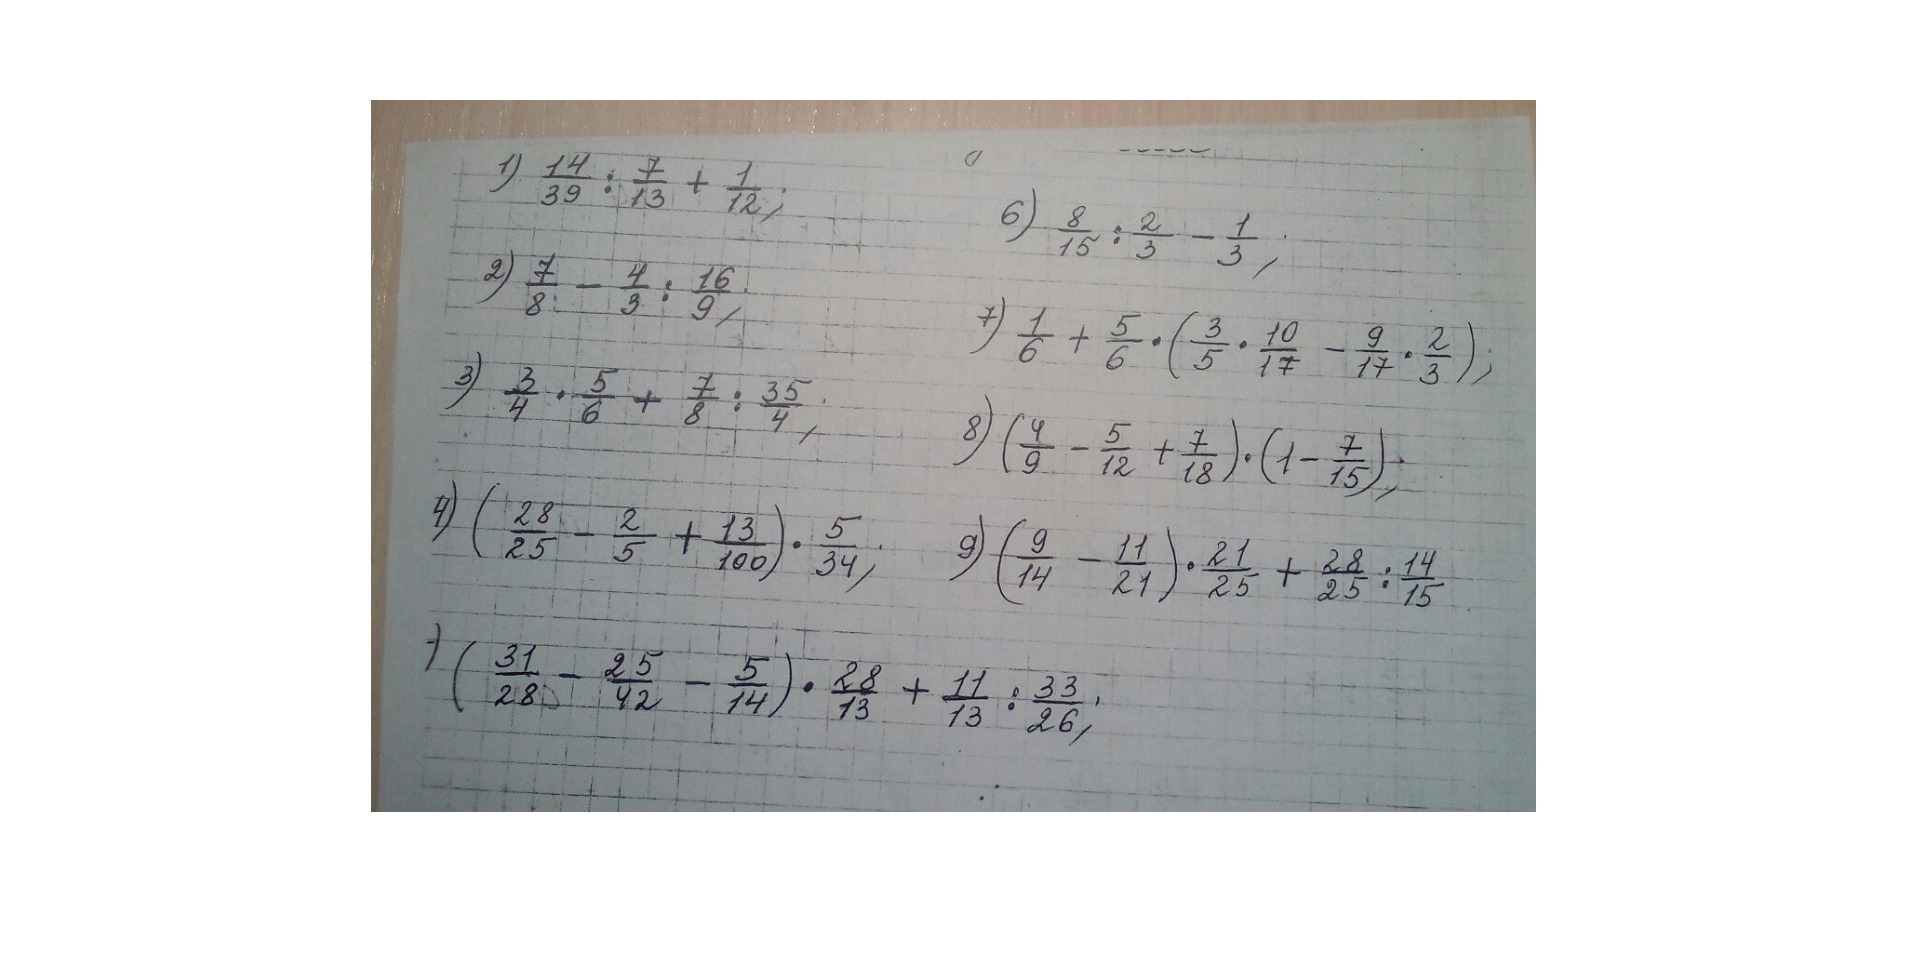 1) 14/39 : 7/13 + 1/12;
2) 7/8 - 4/3 : 16/9;
3) 3/4 · 5/6 + 7/8 : 35/4;
4) (28/25 - 2/5 + 13/100) · 5/34;
) (31/28 - 25/42 - 5/14) · 28/13 + 11/13 : 33/26;
6) 8/15 : 2/3 - 1/3;
7) 1/6 + 5/6 · (3/5 · 10/17 - 9/17 · 2/3);
8) (4/9 - 5/12 + 7/18) · (1 - 7/15);
9) (9/14 - 11/21) · 21/25 + 28/25 : 14/15